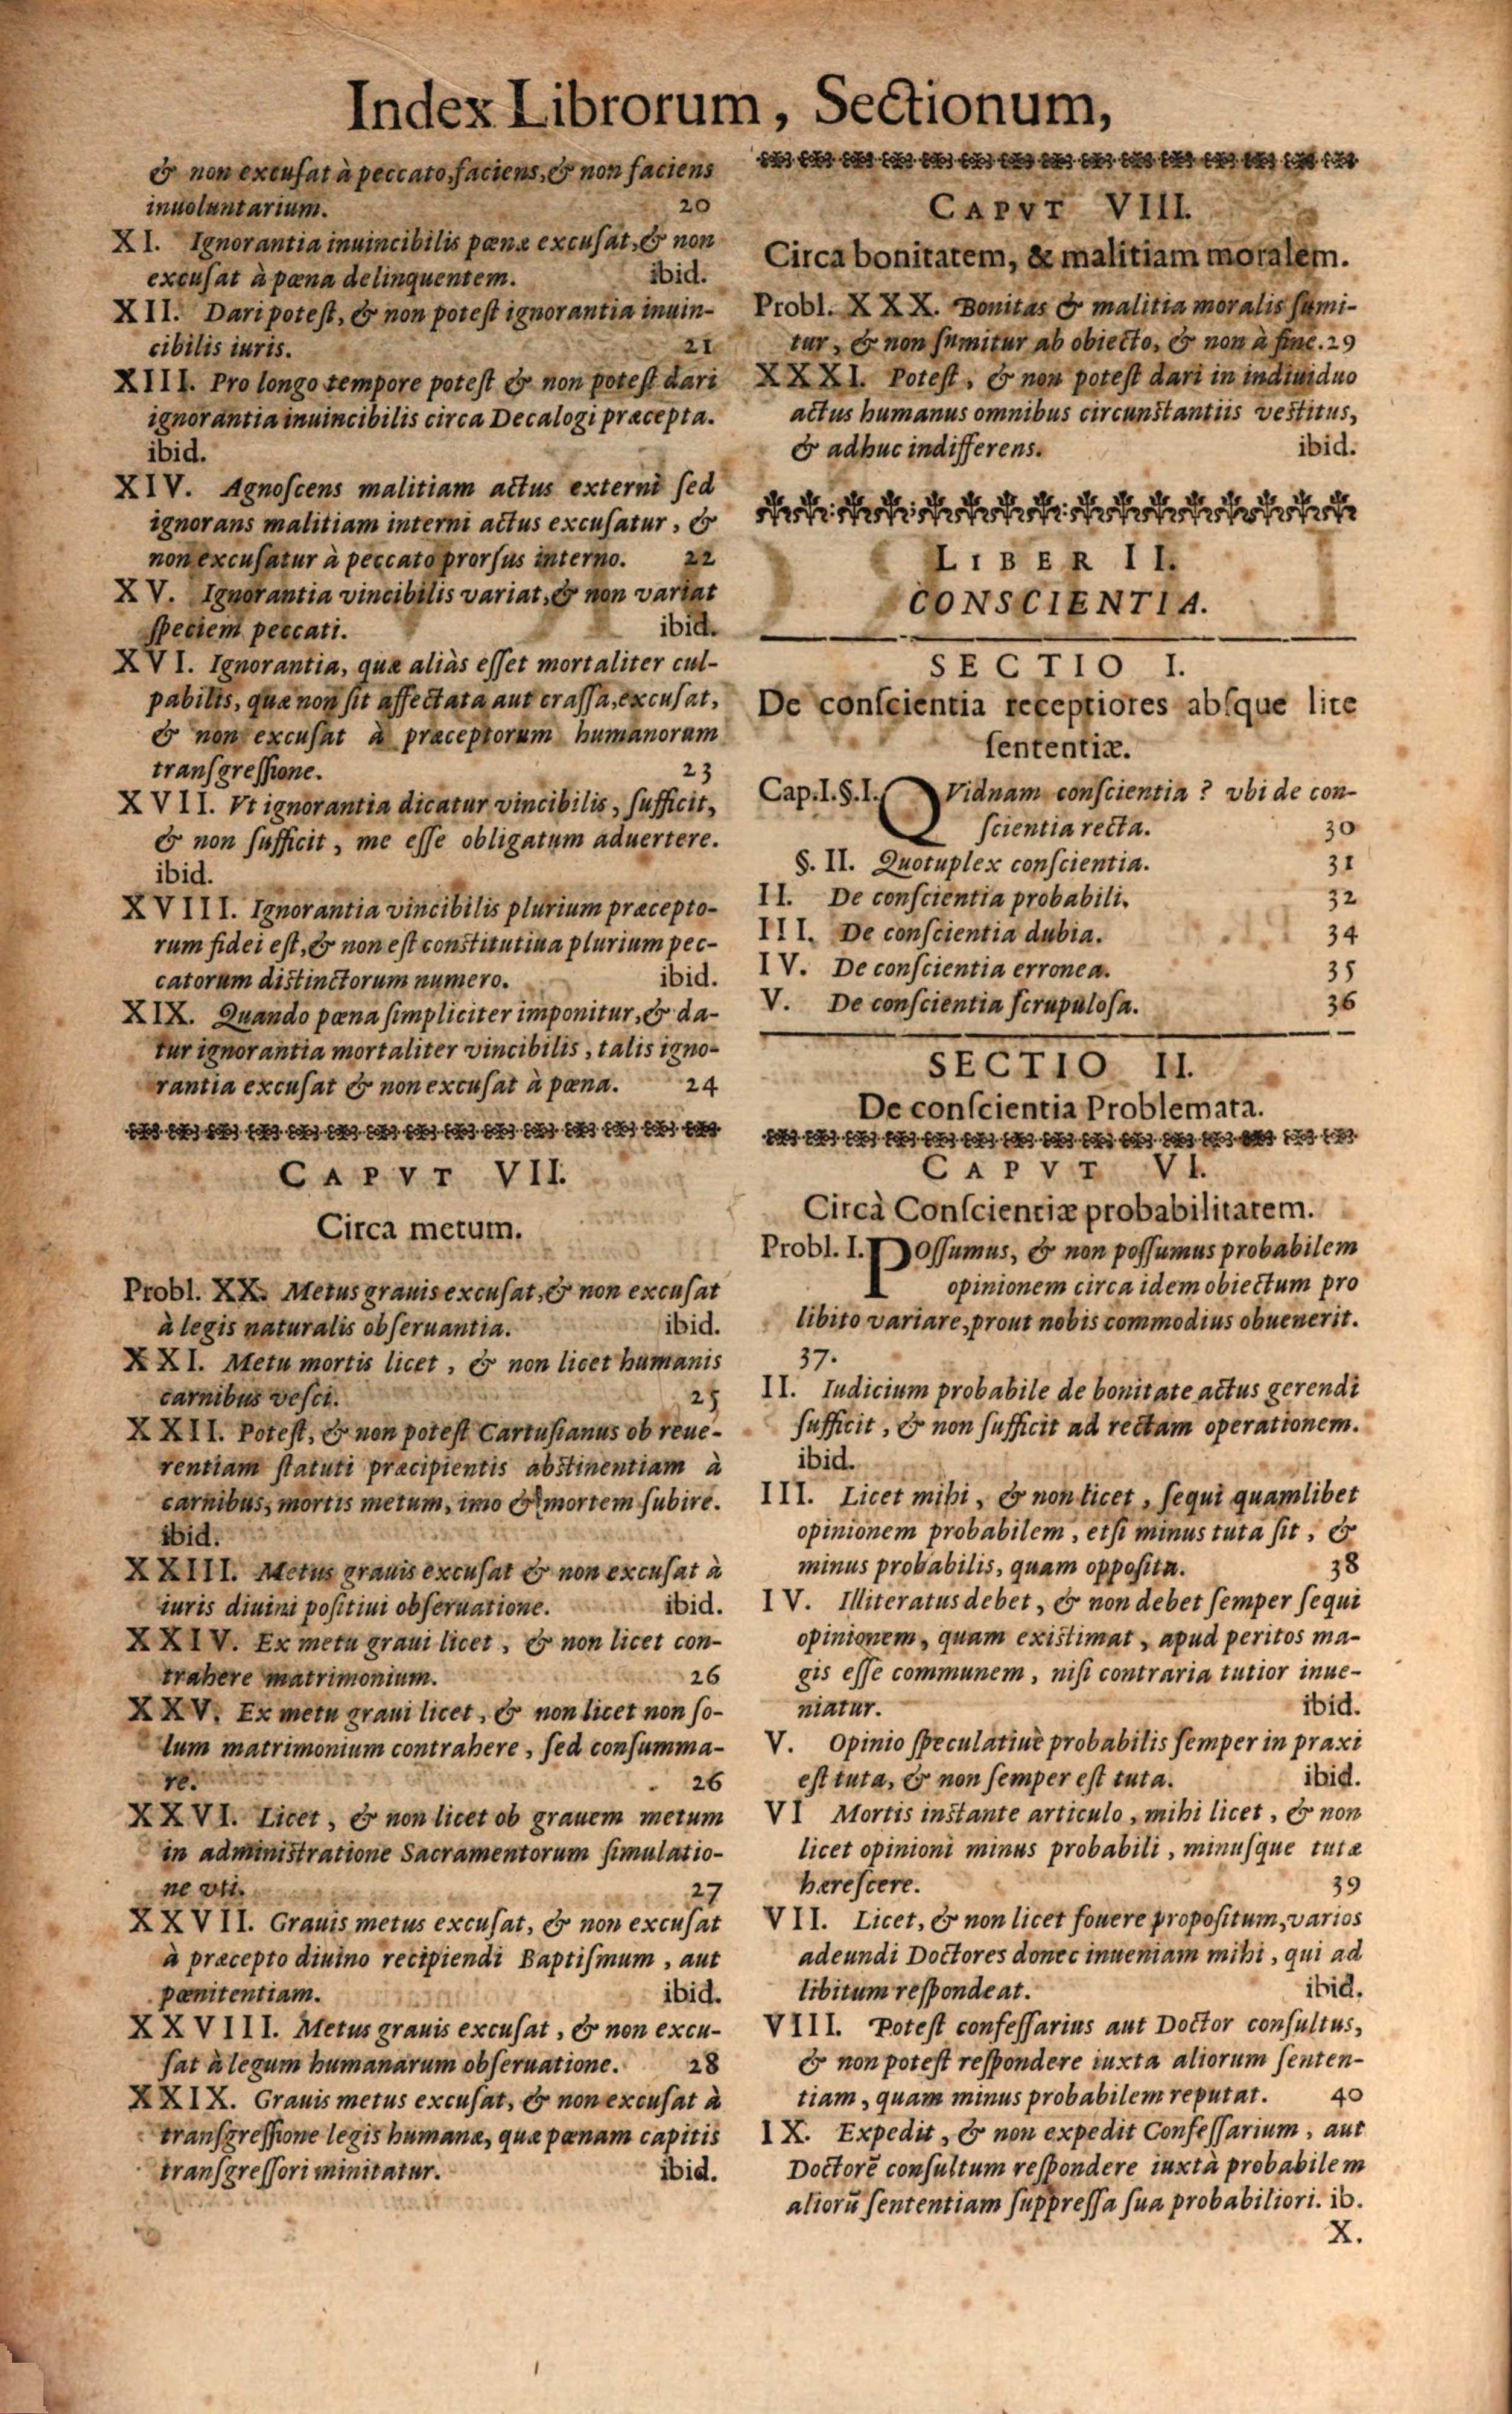 Index Librorum, Sectionum,
& non excuſat à peccato, faciens, & non faciens
inuoluntarium. 20
XI. Ignorantia inuincibilis pœna excuſat, & non
excuſat à pœna delinquentem. ibid.
XII. Dari poteſt, & non poteſt ignorantia inuin-
cibilis iuris. 21
XIII. Pro longo tempore poteſt & non poteſt dari
ignorantia inuincibilis circa Decalogi præcepta.
ibid.
XIV. Agnoſcens malitiam actus externi ſed
ignorans malitiam interni actus excuſatur, &
non excuſatur à peccato prorſus interno. 22
XV. Ignorantia vincibilis variat, & non variat
ſpeciem peccati. ibid.
XVI. Ignorantia, quæ aliàs eſſet mortaliter cul-
pabilis, quæ non ſit affectata aut craſſa, excuſat,
& non excuſat à præceptorum humanorum
tranſgreſſione. 23
XVII. Vt ignorantia dicatur vincibilis, ſufficit,
& non ſufficit, me eſſe obligatum aduertere.
ibid.
XVIII. Ignorantia vincibilis plurium præcepto-
rum fidei eſt, & non eſt conſtitutiua plurium pec-
catorum diſtinctorum numero. ibid.
XIX. Quando pœna ſimpliciter imponitur, & da-
tur ignorantia mortaliter vincibilis, talis igno-
rantia excuſat & non excuſat à pœna. 24
CAPVT VII.
Circa metum.
Probl. XX. Metus grauis excuſat, & non excuſat
à legis naturalis obſeruantia. ibid.
XXI. Metu mortis licet, & non licet humanis
carnibus veſci. 25
XXII. Poteſt, & non poteſt Cartuſianus ob reue-
rentiam ſtatuti præcipientis abſtinentiam à
carnibus, mortis metum, imo & mortem ſubire.
ibid.
XXIII. Metus grauis excuſat & non excuſat à
iuris diuini poſitiui obſeruatione. ibid.
XXIV. Ex metu graui licet, & non licet con-
trahere matrimonium. 26
XXV. Ex metu graui licet, & non licet non ſo-
lum matrimonium contrahere, ſed conſumma-
re. 26
XXVI. Licet, & non licet ob grauem metum
in adminiſtratione Sacramentorum ſimulatio-
ne vti. 27
XXVII. Grauis metus excuſat, & non excuſat
à præcepto diuino recipiendi Baptiſmum, aut
pœnitentiam. ibid.
XXVIII. Metus grauis excuſat, & non excu-
ſat à legum humanarum obſeruatione. 28
XXIX. Grauis metus excuſat, & non excuſat à
tranſgreſſione legis humanæ, quæ pœnam capitis
tranſgreſſori minitatur. ibid.
CAPVT VIII.
Circa bonitatem, & malitiam moralem.
Probl. XXX. Bonitas & malitia moralis ſumi-
tur, & non ſumitur ab obiecto, & non à fine. 29
XXXI. Poteſt, & non poteſt dari in indiuiduo
actus humanus omnibus circunſtantiis veſtitus,
& adhuc indifferens. ibid.
LIBER II.
CONSCIENTIA.
SECTIO I.
De conſcientia receptiores abſque lite
ſententiæ.
Cap.I.§.I. QVidnam conſcientia? vbi de con-
ſcientia recta. 30
§. II. Quotuplex conſcientia. 31
II. De conſcientia probabili. 32
III. De conſcientia dubia. 34
IV. De conſcientia erronea. 35
V. De conſcientia ſcrupuloſa. 36
SECTIO II.
De conſcientia Problemata.
CAPVT VI.
Circà Conſcientiæ probabilitatem.
Probl. I. POſſumus, & non poſſumus probabilem
opinionem circa idem obiectum pro
libito variare, prout nobis commodius obuenerit.
37.
II. Iudicium probabile de bonitate actus gerendi
ſufficit, & non ſufficit ad rectam operationem.
ibid.
III. Licet mihi, & non licet, ſequi quamlibet
opinionem probabilem, etſi minus tuta ſit, &
minus probabilis, quam oppoſita. 38
IV. Illiteratus debet, & non debet ſemper ſequi
opinionem, quam exiſtimat, apud peritos ma-
gis eſſe communem, niſi contraria tutior inue-
niatur. ibid.
V. Opinio ſpeculatiuè probabilis ſemper in praxi
eſt tuta, & non ſemper eſt tuta. ibid.
VI Mortis inſtante articulo, mihi licet, & non
licet opinioni minus probabili, minuſque tutæ
hæreſcere. 39
VII. Licet, & non licet fouere propoſitum, varios
adeundi Doctores donec inueniam mihi, qui ad
libitum reſpondeat. ibid.
VIII. Poteſt confeſſarius aut Doctor conſultus,
& non poteſt reſpondere iuxta aliorum ſenten-
tiam, quam minus probabilem reputat. 40
IX. Expedit, & non expedit Confeſſarium, aut
Doctorē conſultum reſpondere iuxtà probabilem
aliorū ſententiam ſuppreſſa ſua probabiliori. ib.
X.